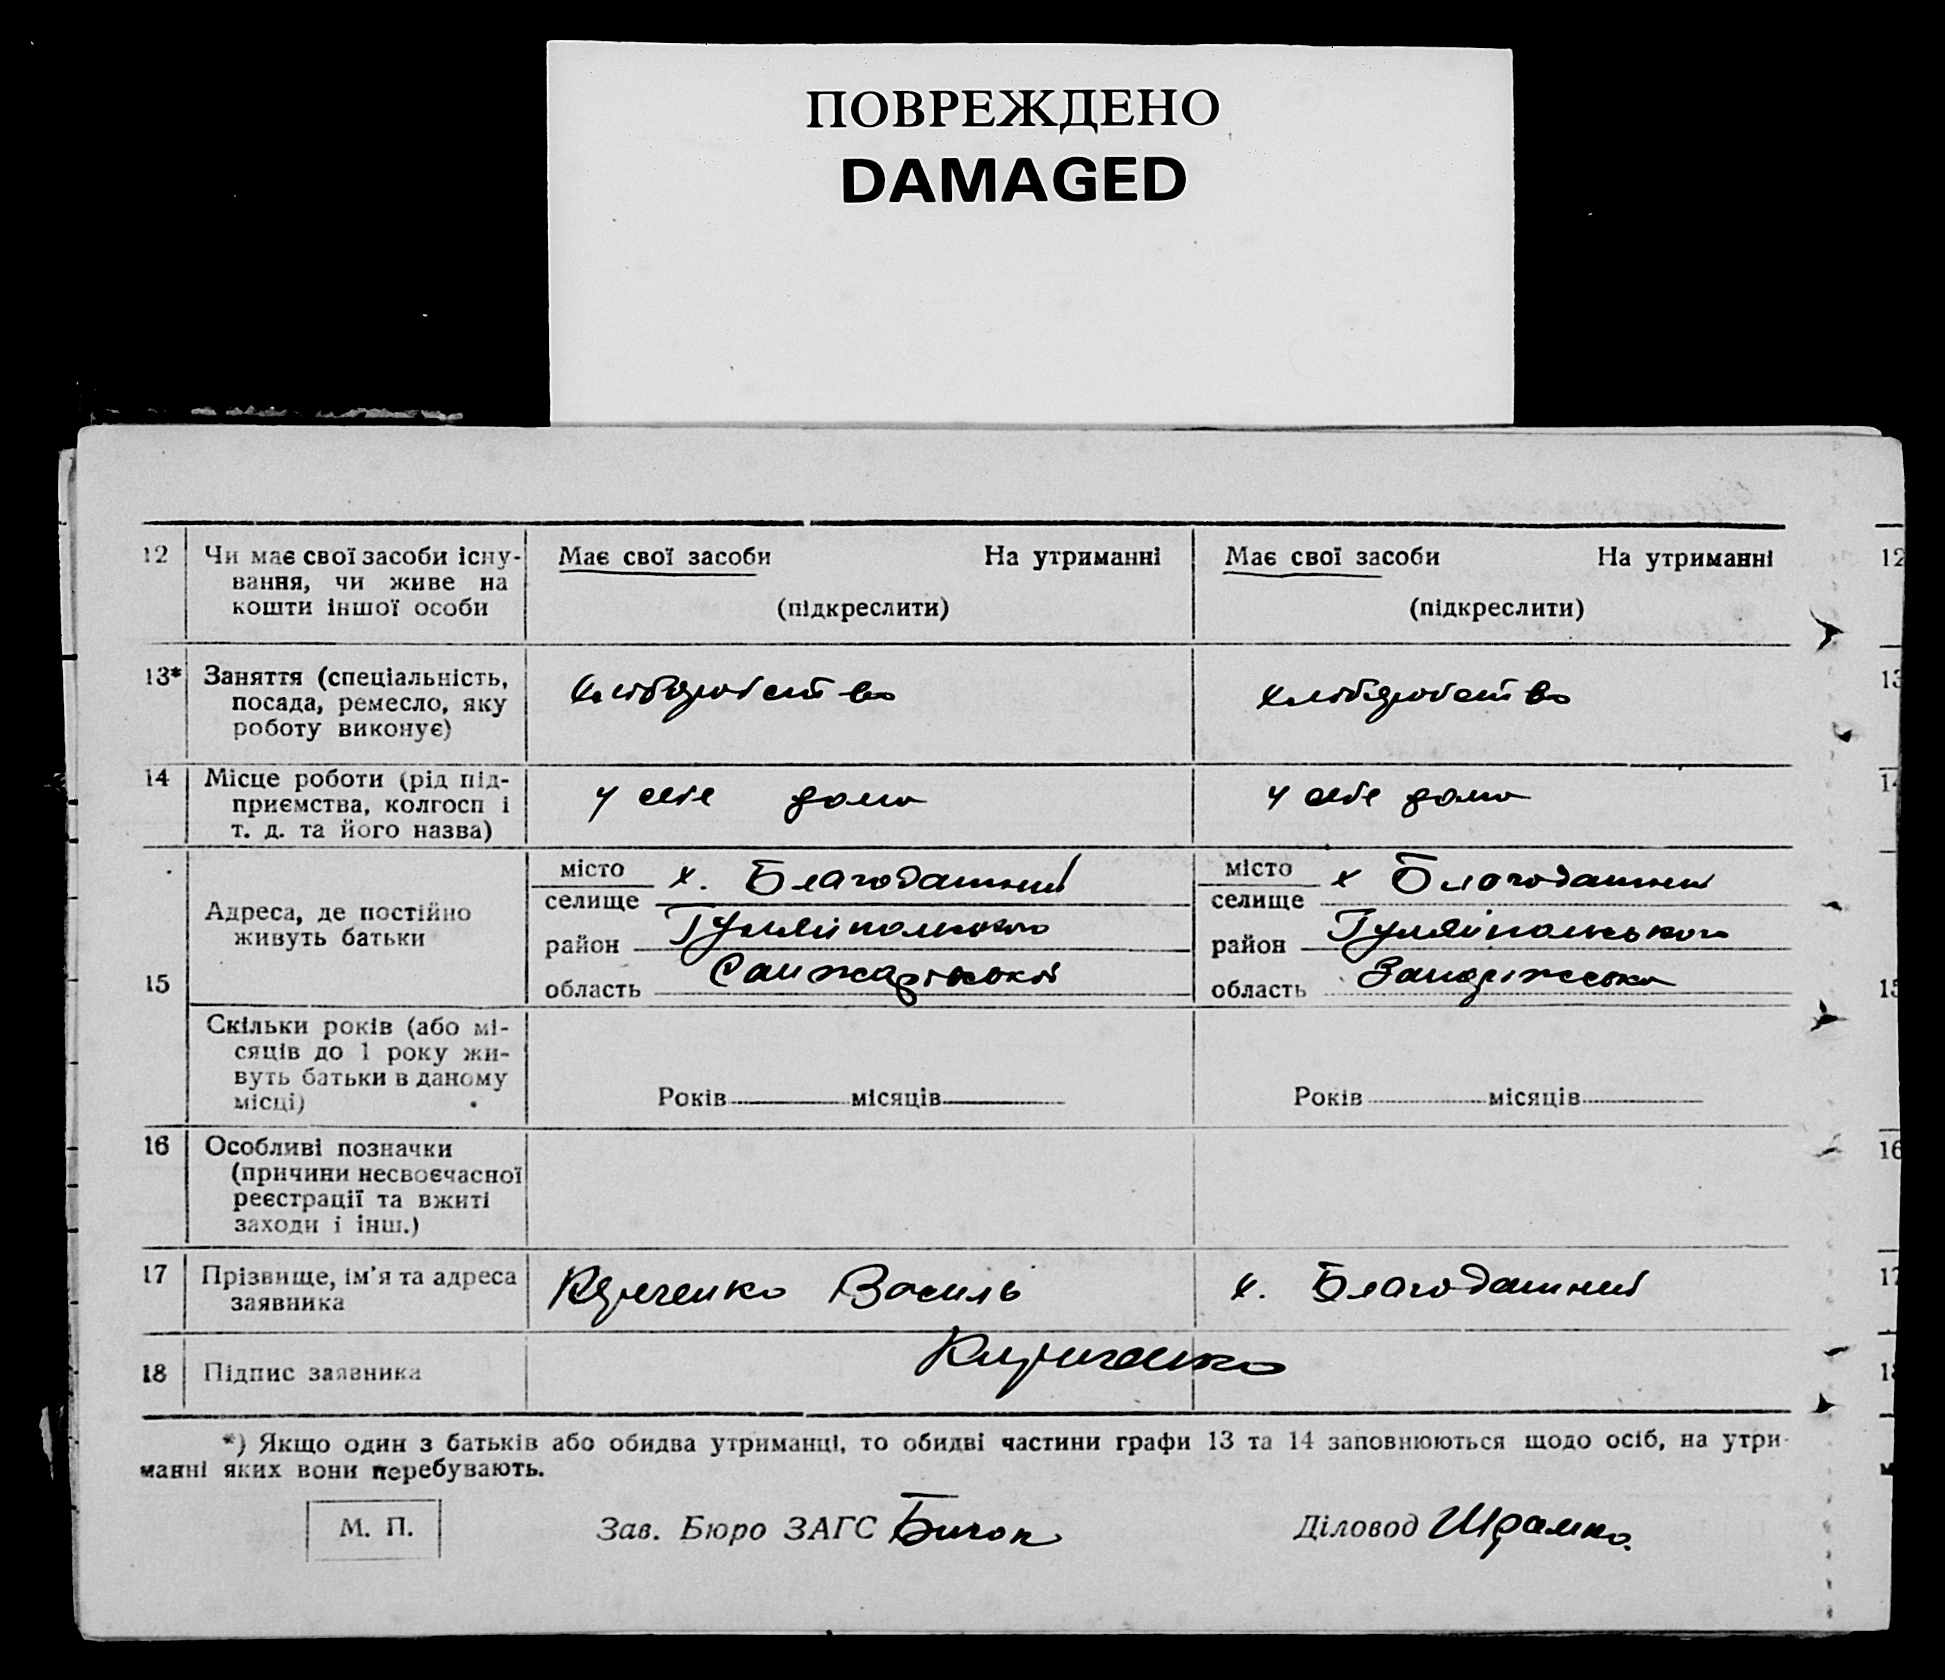 ПОВРЕЖДЕНО
DAMAGED
12 Чи має свої засоби існу-
вання, чи живе на
кошти іншої особи
Має свої засоби На утриманні
(підкреслити)
Має свої засоби На утриманні
(підкреслити)
12
13* Заняття (спеціальність,
посада, ремесло, яку
роботу виконує)
хліборобство
хліборобство
13
14 Місце роботи (рід під-
приємства, колгосп і
т. д. та його назва)
у себе дома
у себе дома
14
15 Адреса, де постійно
живуть батьки
місто
селище х. Благодатний
район Гуляйпольського
область
місто
селище х Благодатний
район Гуляйпольського
область Запоріжська
15
Скільки років (або мі-
сяців до 1 року жи-
вуть батьки в даному
місці)
Років місяців
Років місяців
16 Особливі позначки
(причини несвоєчасної
реєстрації та вжиті
заходи і інш.)
16
17 Прізвище, ім'я та адреса
заявника
Василь
х. Благодатний
17
18 Підпис заявника
18
*) Якщо один з батьків або обидва утриманці, то обидві частини графи 13 та 14 заповнюються щодо осіб, на утри-
манні яких вони перебувають.
М. П.
Зав. Бюро ЗАГС
Діловод Шрамко.